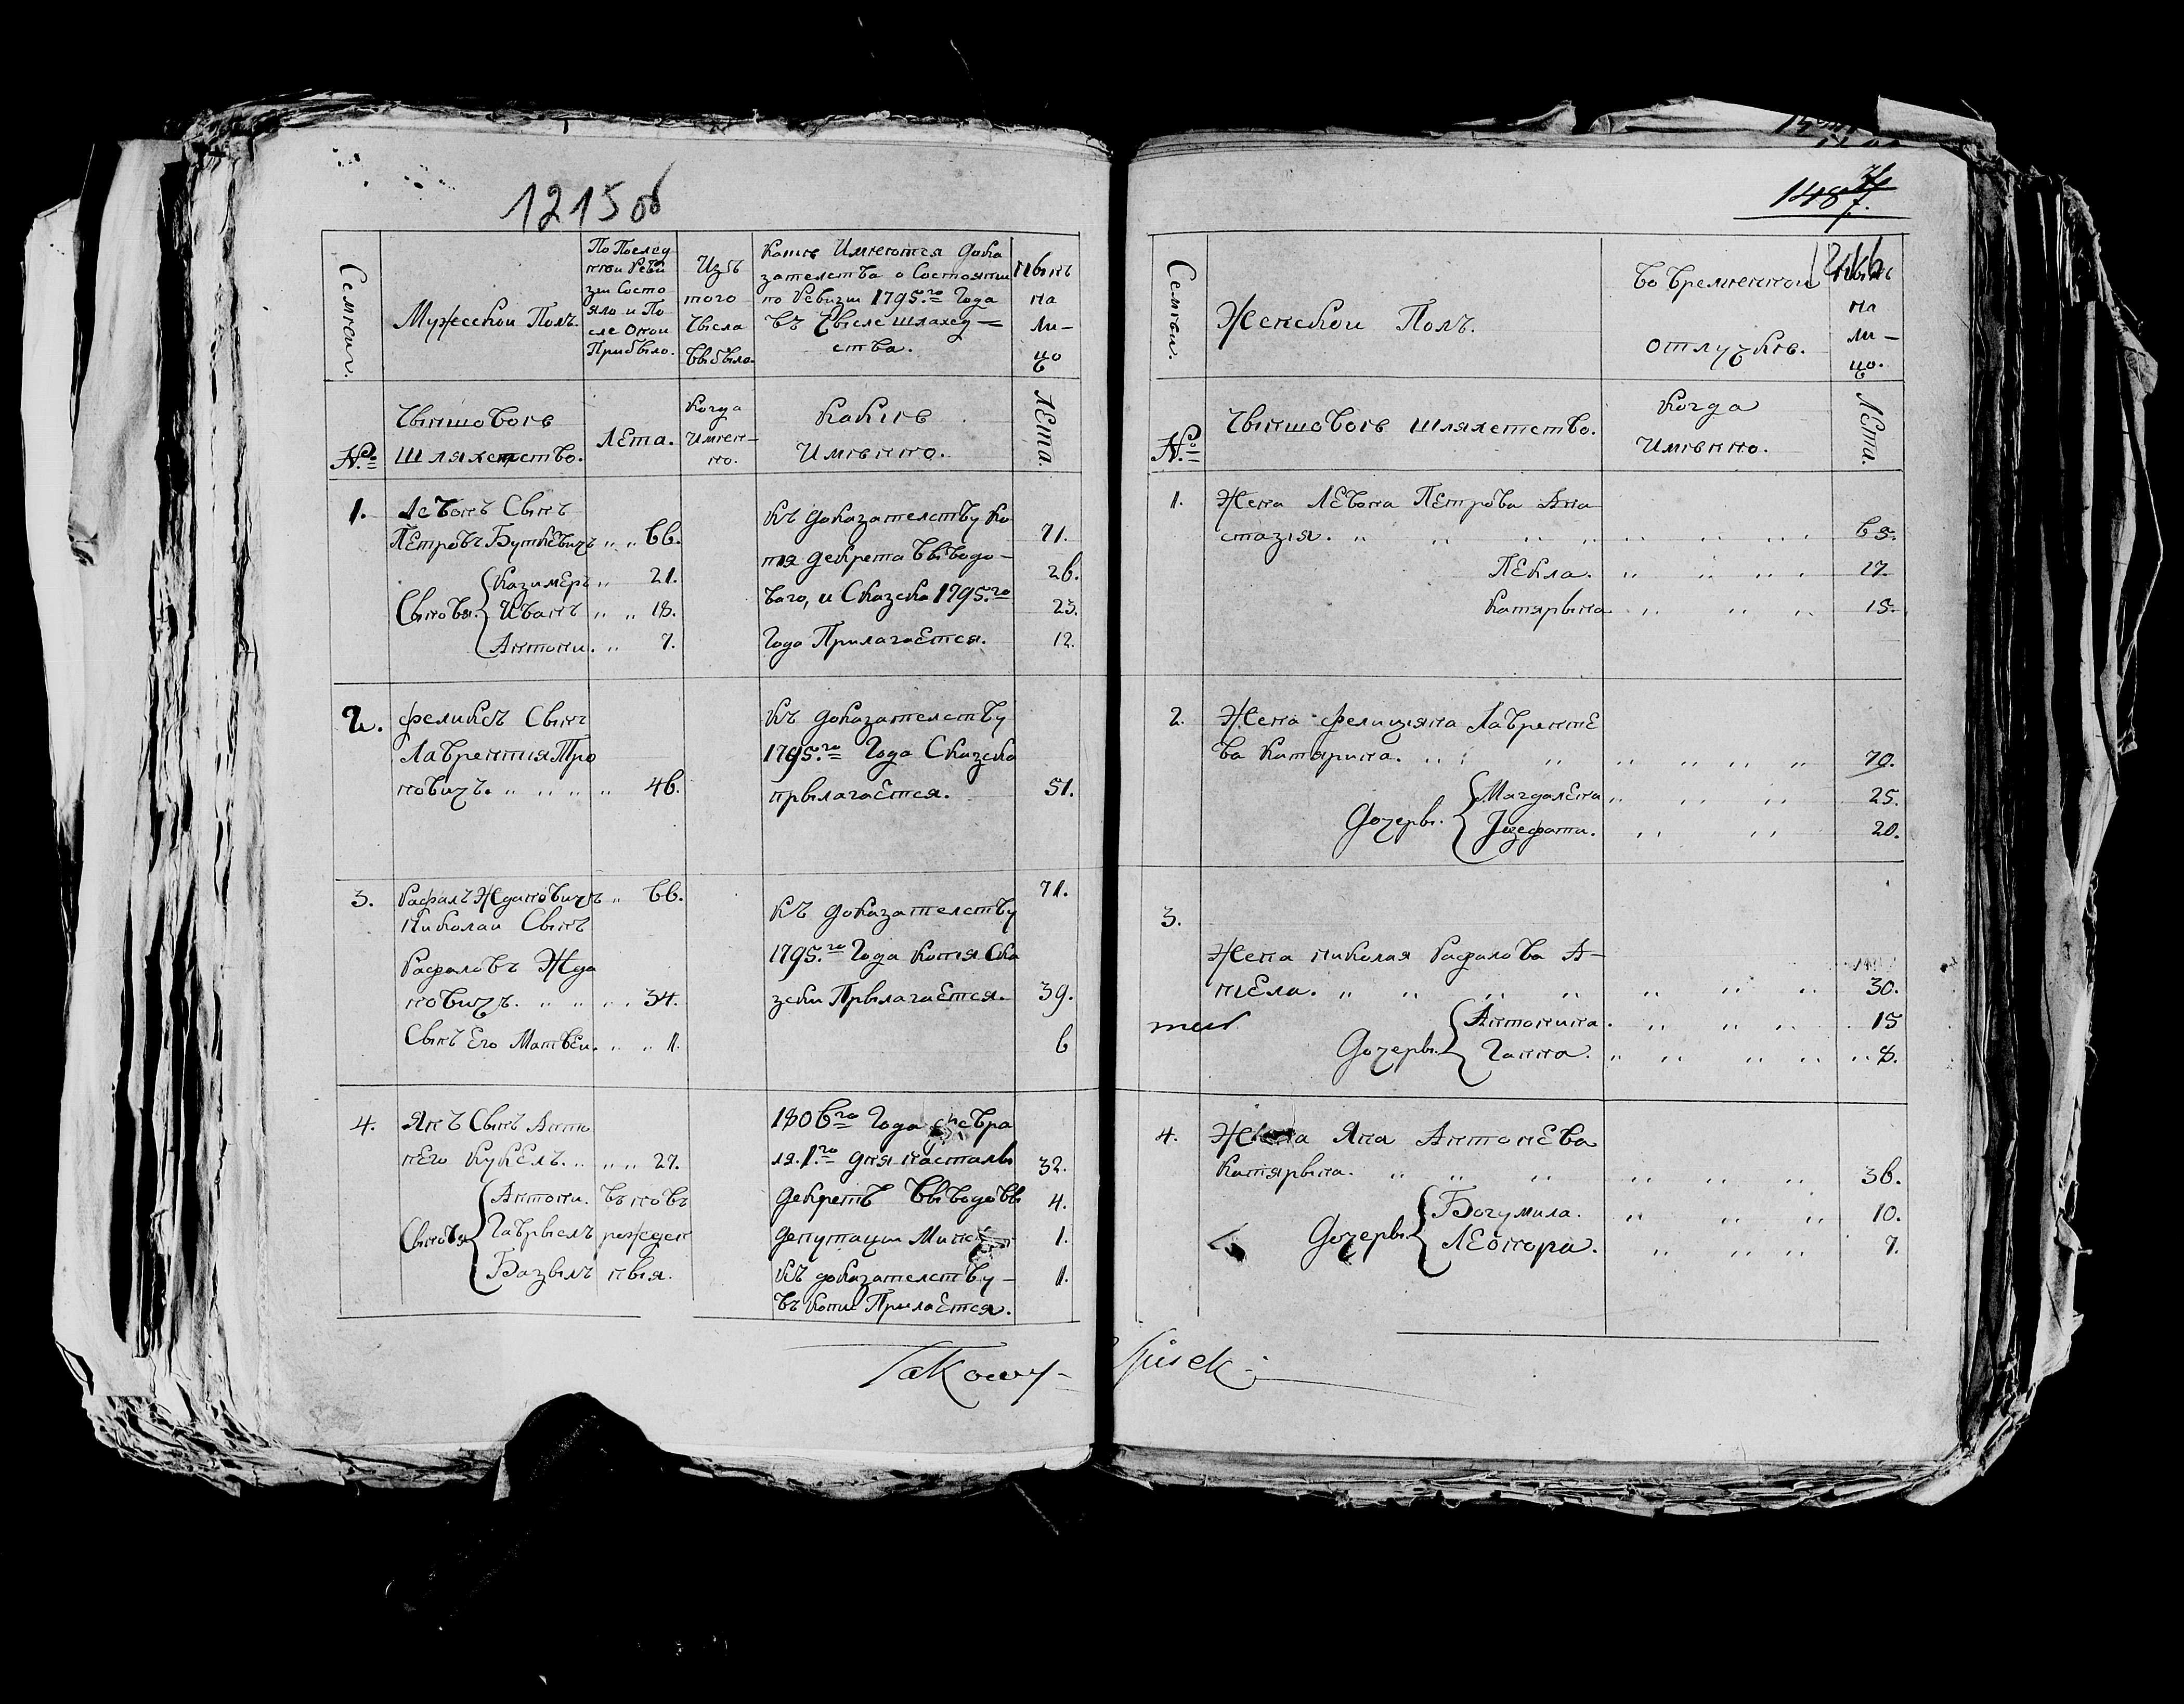 1215 об
Семьи.
Мужеской Полъ.
По Послед
ней Реви
зии Состо
яло и По
сле Оной
Прибыло.
Изъ
того
Числа
Выбыло
Какие Имеются Дока
зателства о Состоянии
по Ревизии 1795.го Года
въ Числе шляхед=
ства.
Ныне
на
ли-
цо
№
Чыншовое
Шляхетство.
Лета.
Когда
Имен-
но.
Какие
Именно.
Лета.
1. Левонъ Сынъ
Петровъ Буткевичъ „ „ 66.
Сыновя. Казимеръ „ 21.
Иванъ „ „ 18.
Антони. „ 7.
Къ доказателству ко
пия декрета выводо-
ваго, и Сказска 1795.го
Года Прилагается.
71.
26.
23.
12.
2. Феликсъ Сынъ
Лаврентия Про
новичъ. „ „ „ „ 46.
Къ доказателству
1795.го Года Сказска
прылагается.
51.
3. Рафалъ Ждановичъ „ 66.
Николаи Сынъ
Рафаловъ Жда
новичъ. „ „ „ „ 34.
Сынъ Его Матвеи. „ „ 1.
Къ доказателству
1795.го Года копия Ска
зски Прылагается.
71.
39.
6
4. Янъ Сынъ Анто
нЕго Кукель. „ „ „ 27.
Сыновя Антони. въ новъ
Гаврыелъ рожден
Базылъ ныя.
1806го Года февра
ля 1.го дня насталы
Декретъ Выводовы
Депутации Минс
Къ доказателству-
въ копии Прилается.
32.
4.
1.
1.
148
7.
1216
Семьи.
Женской Полъ.
Во временной
отлучке.
на
ли-
цо.
№
Чыншовое шляхетство.
Когда
Именно.
Лета.
1. Жена Левона Петрова Ана
стазия. „ „ „ „ „ „ „ „ 65.
Пекла. „ „ „ „ 17.
Катярына. „ „ „ 15.
2. Жена Фелицияна Лавренте
ва Катярина. „ „ „ „ „ „ „ 70.
Дочеры. Магдалена „ „ „ 25.
Iозефати. „ „ „ 20.
3.
Жена николая Рафалова А-
ниела. „ „ „ „ „ „ „ 30.
Дочеры. Антонина. „ „ „ „ 15
Ганна. „ „ „ „ „ 8.
4. Жена Яна Антонева
Катярына. „ „ „ „ „ „ „ 36.
Дочеры. Богумила. „ „ „ 10.
Леонора. „ „ „ 7.
Takowy-
Spisek